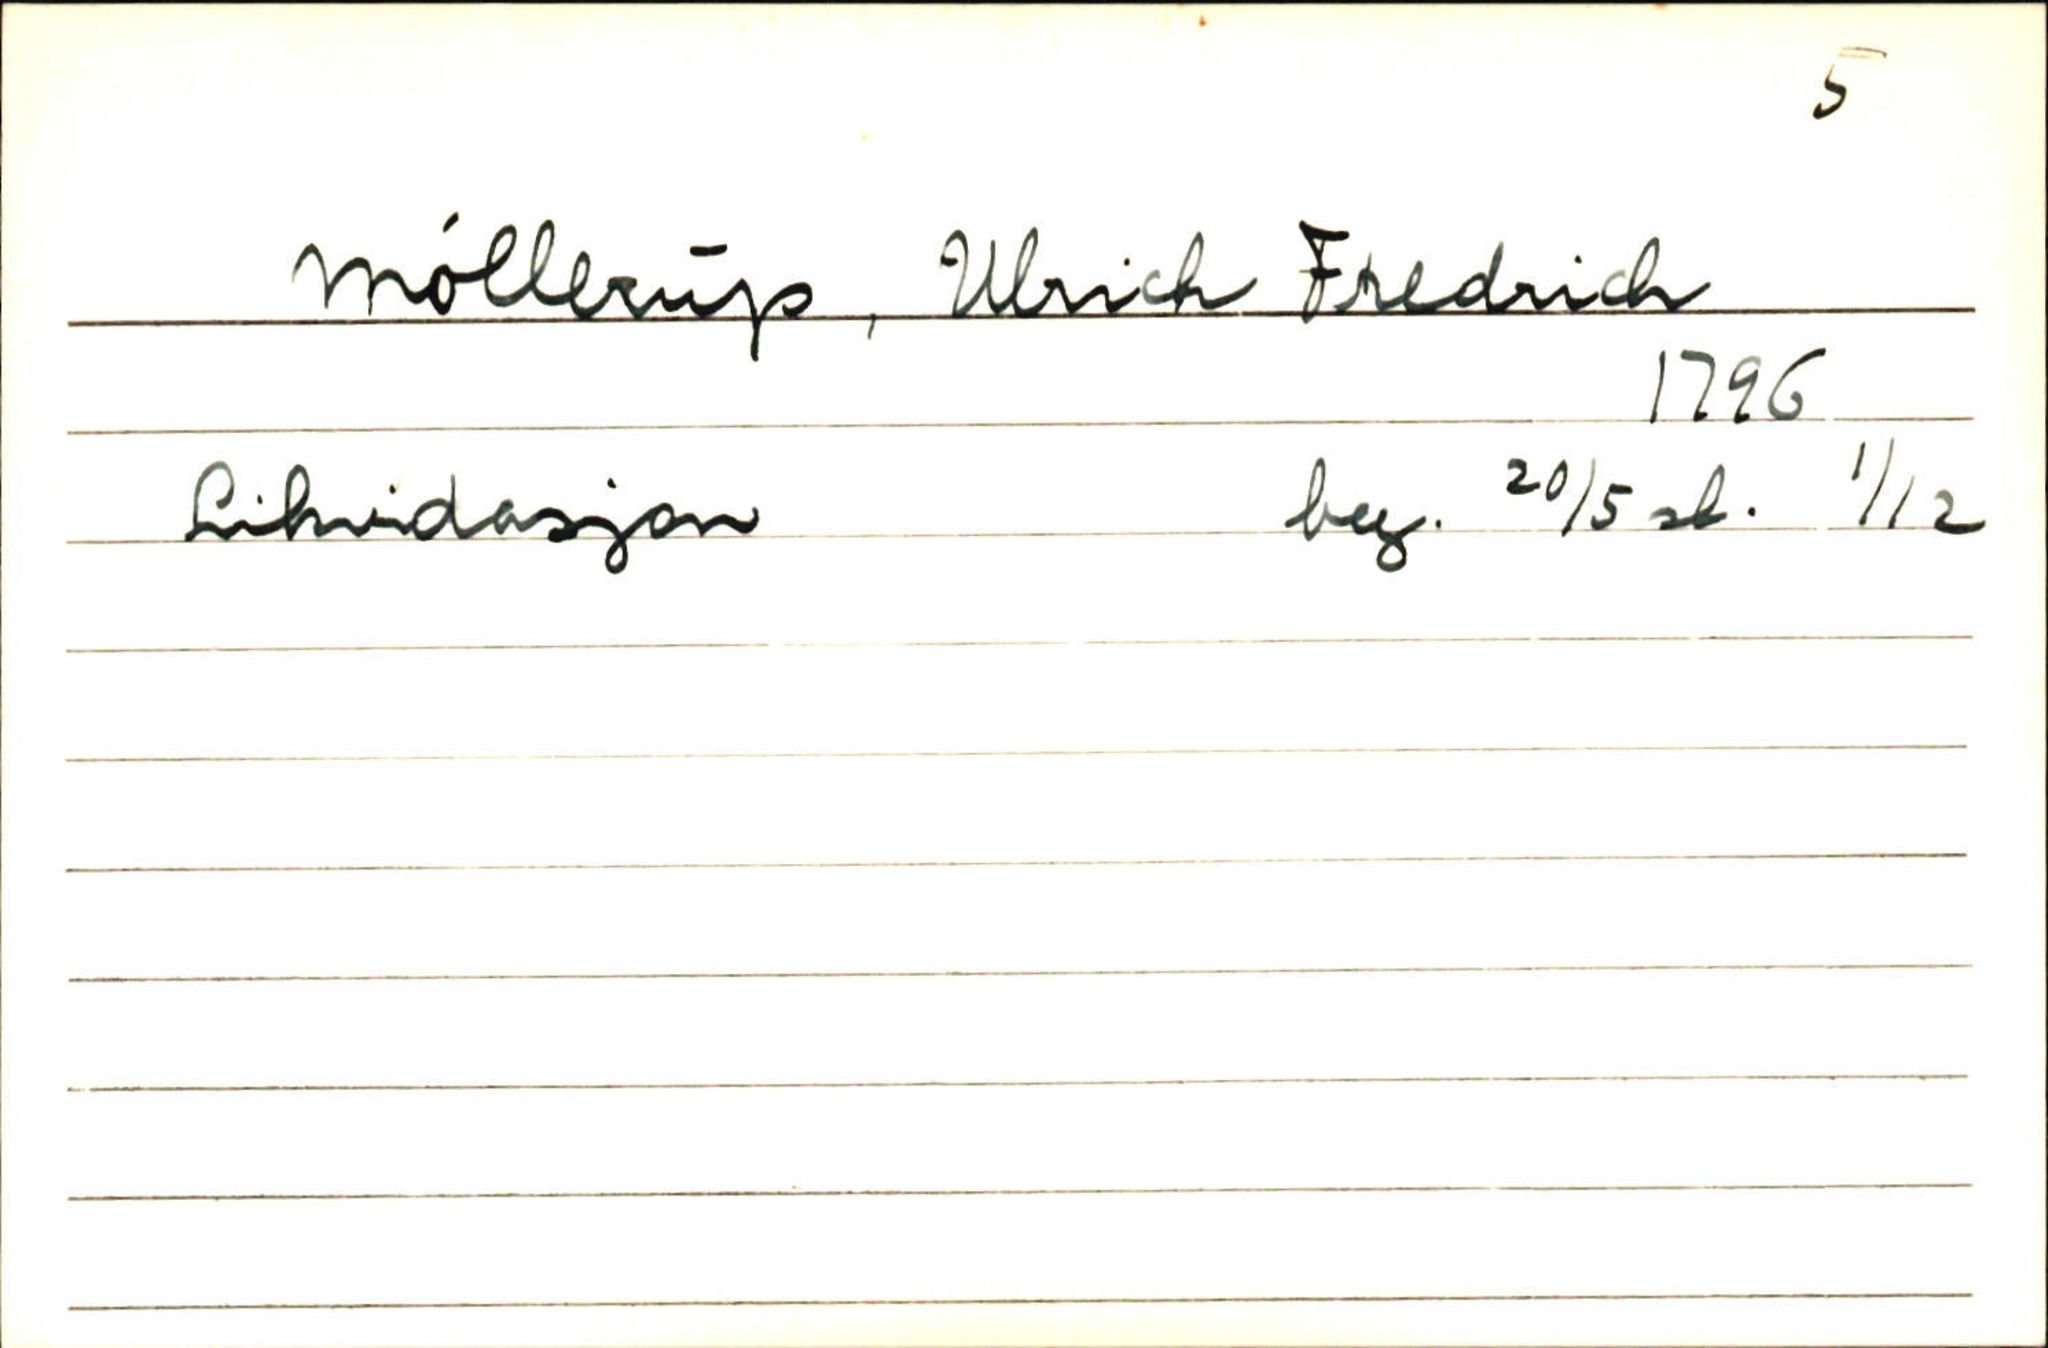 5
Möllerup, Ulrich Fredrich
1796
Likvidasjon beg. 20/5 sl. 1/12